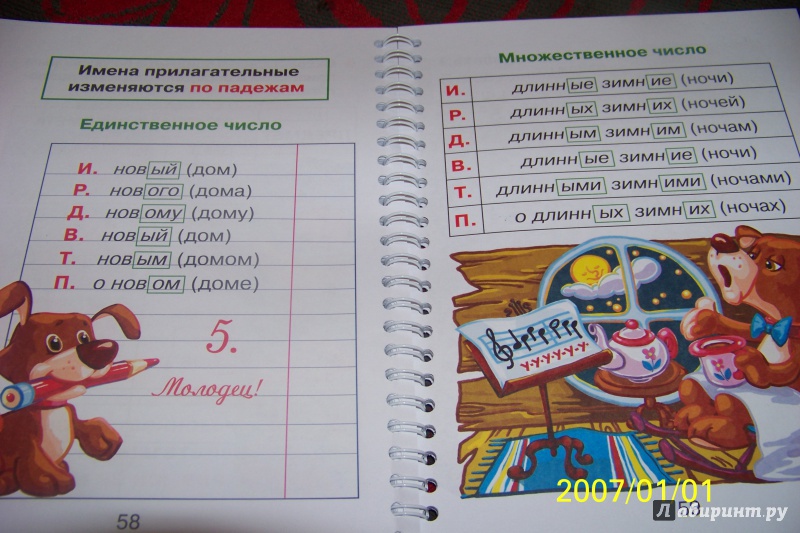 Имена прилагательные
изменяются по падежам
Единственное число
И. новый (дом)
Р. нового (дома)
Д. новому (дому)
В. новый (дом)
Т. новым (домом)
П. о новом (доме)
5.
Молодец!
58
Множественное число
И. длинные зимние (ночи)
Р. длинных зимних (ночей)
Д. длинным зимним (ночам)
В. длинные зимние (ночи)
Т. длинными зимними (ночами)
П. о длинных зимних (ночах)
у-у-у-у-у-у
2007/01/01
Лабиринт.ру